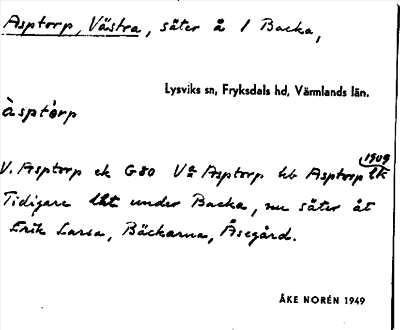 Asptorp, Västra, säter å 1 Backa,
Lysviks sn, Fryksdals hd, Värmlands län.
àsptòrp
V. Asptorp ek G80 Vª Asptorp hb Asptorp 1909 lk
Tidigare låt under Backa, nu säter åt
Erik Larsa, Bäckarna, Åsegård.
ÅKE NORÉN 1949